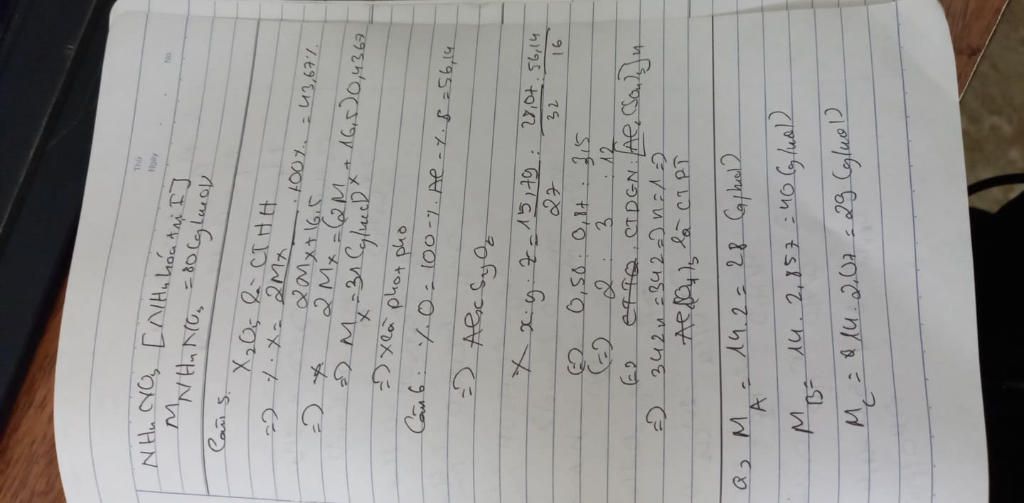 Thứ
Ngày
No
NH4NO3 [NH4 hóa trị I]
M NH4NO3 = 80 (g/mol)
Câu 5. X2O5 là CTHH
=> % X = 2MX / 2MX + 16.5 . 100% = 43,67%
=> 2MX = (2M X + 16.5) 0,4367
=> M X = 31 (g/mol)
=> X là photpho
Câu 6: % O = 100 - % Al - % S = 56,14
=> Alx Sy Oz
x : y : z = 15,79 / 27 : 28,07 / 32 : 56,14 / 16
(=) 0,58 : 0,87 : 3,5
(=) 2 : 3 : 12
(=) CTDGN: [Al2(SO4)3]n
=> 342n = 342 => n = 1 =>
là CTPT
a, MA = 14.2 = 28 (g/mol)
MB = 14.2,857 = 40 (g/mol)
MC = 14.2.07 = 29 (g/mol)